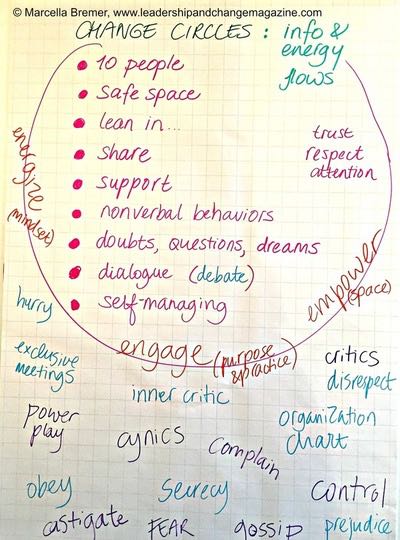 © Marcella Bremer, www.leadershipandchangemagazine.com
CHANGE CIRCLES: info &
energy
flows
10 people
safe space
lean in...
share
support
nonverbal behaviors
doubts, questions, dreams
dialogue (debate)
self-managing
trust
respect
attention
energize
(mindset)
empower
(space)
engage (purpose
& practice)
hurry
exclusive
meetings
critics
disrespect
inner critic
power
play
cynics
complain
organization
chart
obey
secrecy
control
castigate
FEAR
gossip
prejudice